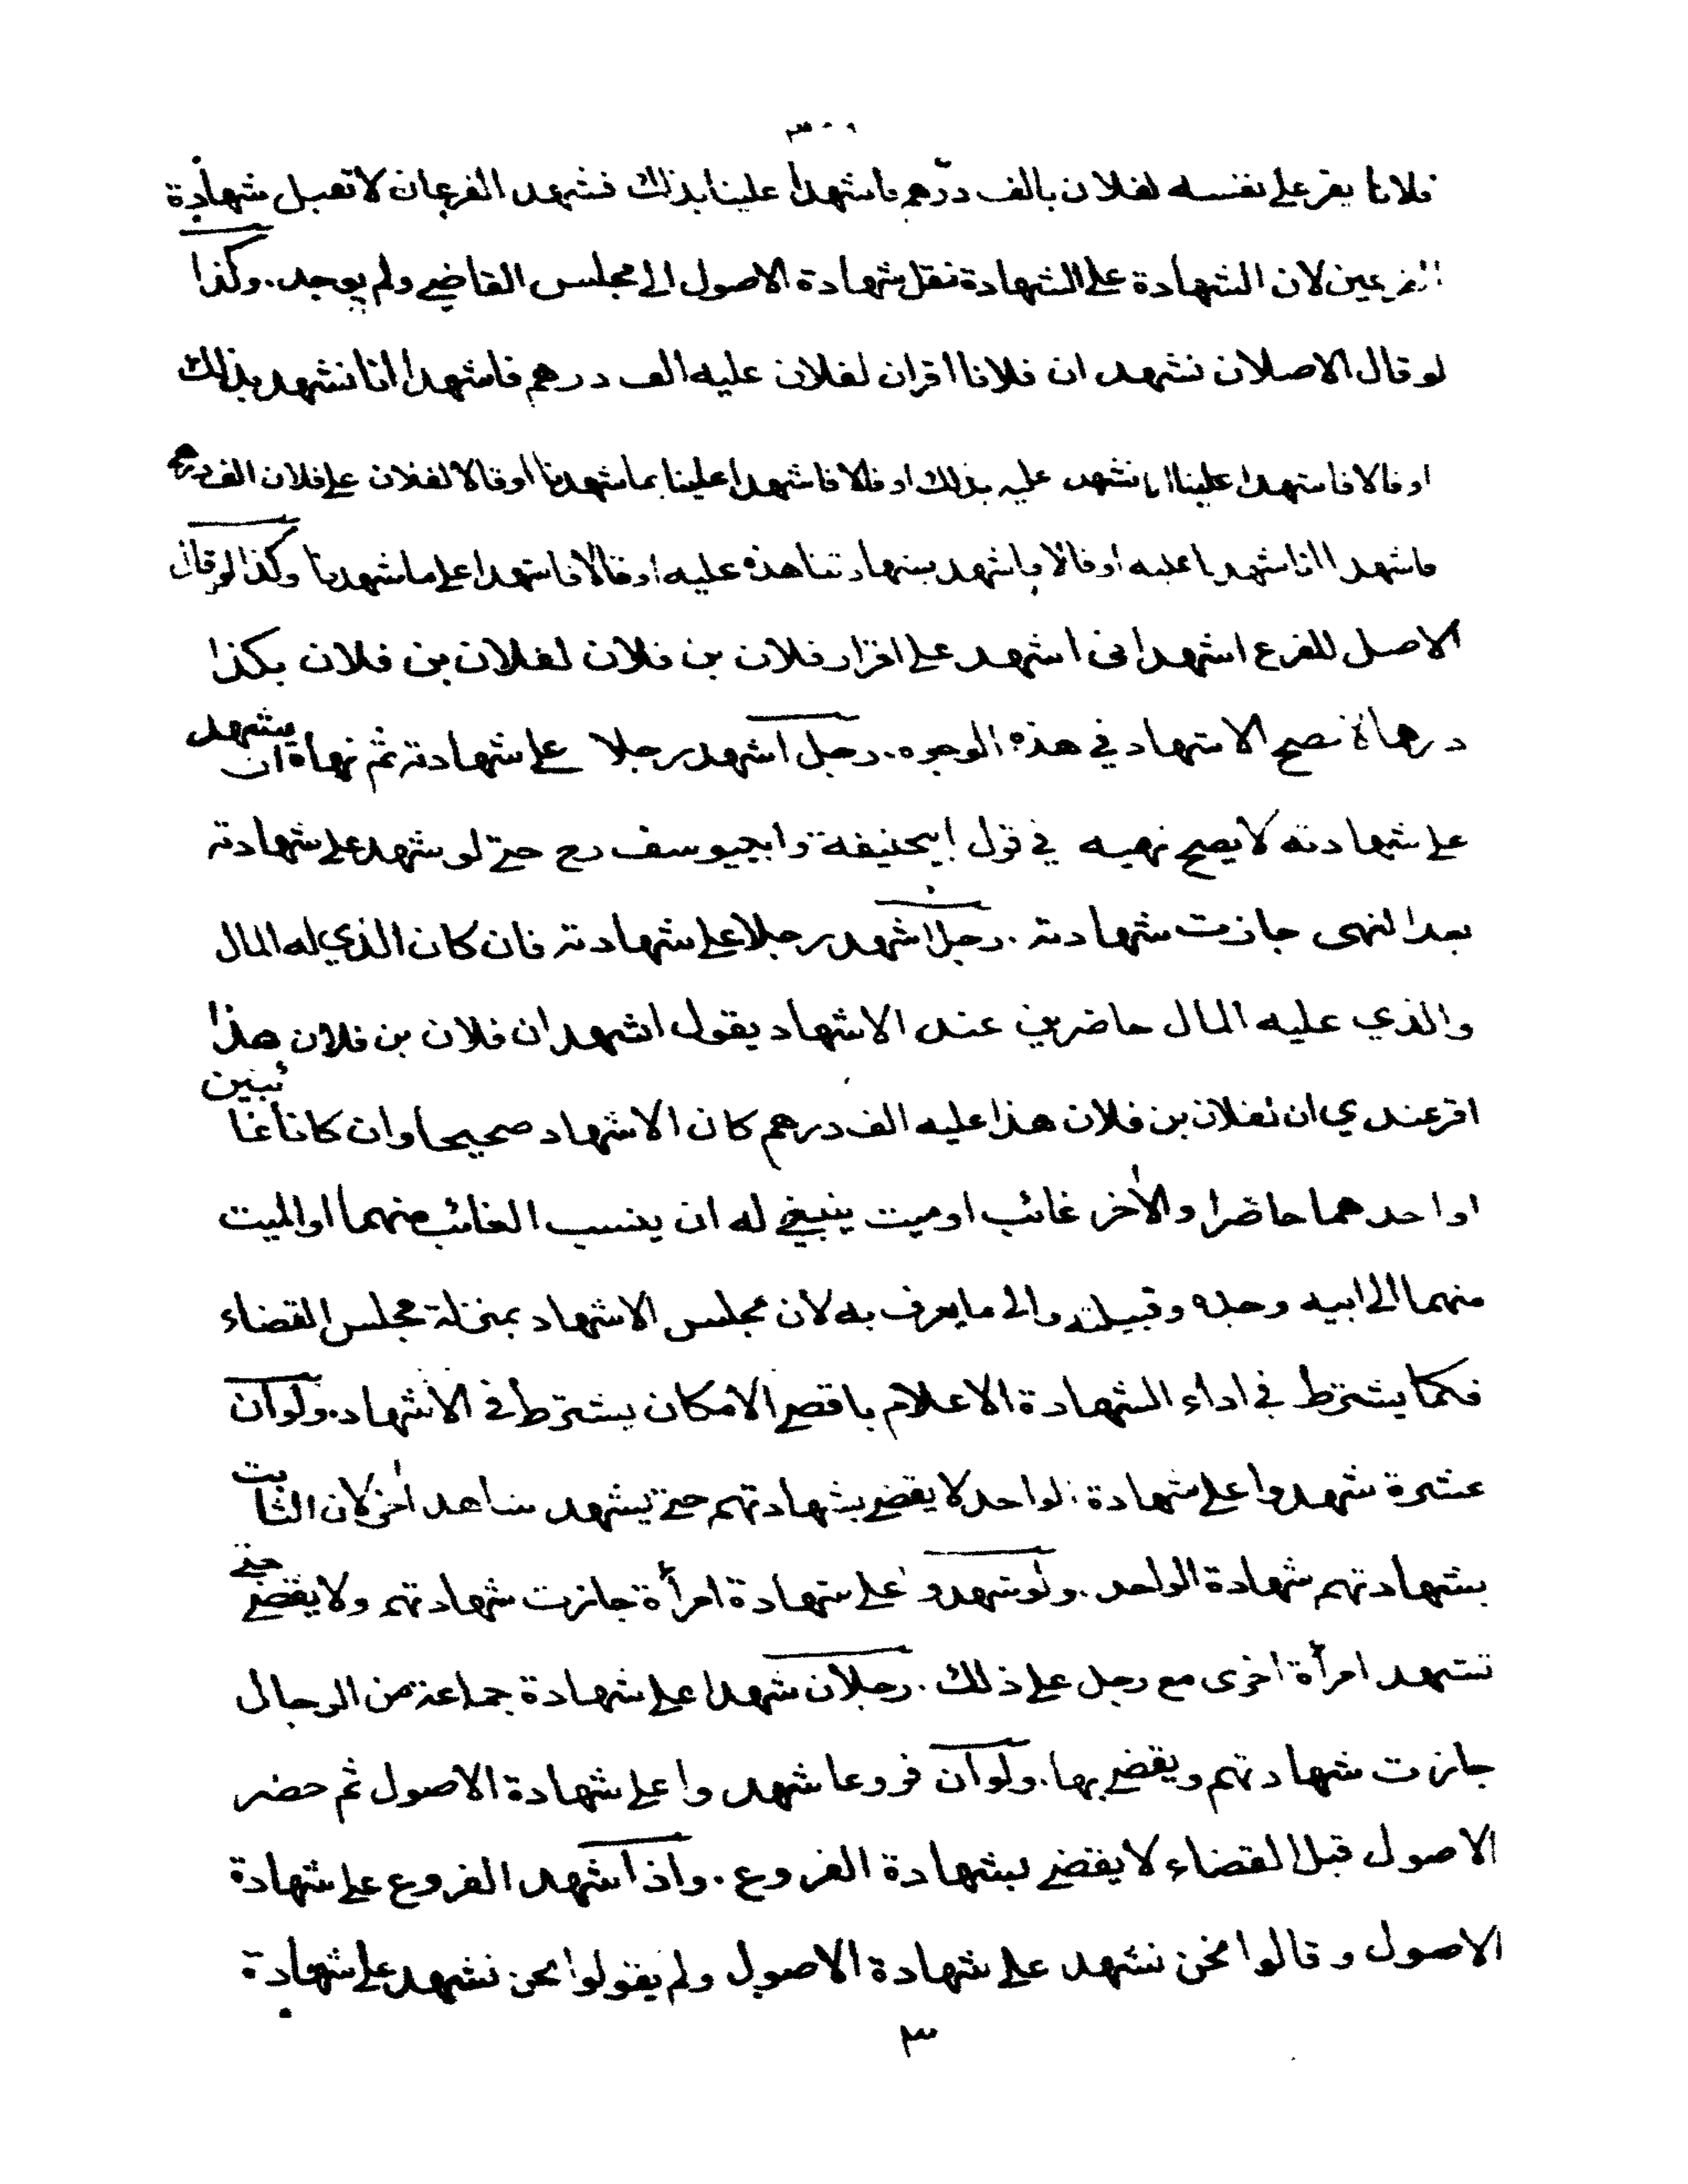 فلانا يقر على نفسه لفلان بالف درهم فاشهدا علينا بذلك فشهد الفرعان لا تقبل شهادة
الفرعين لان الشهادة على الشهادة نقل شهادة الاصول الى مجلس القاضي ولم يوجد. وكذا
لو قال الاصلان نشهد ان فلانا اقر ان لفلان عليه الف درهم فاشهدا انا نشهد بذلك
او قالا فاشهدا علينا انا نشهد عليه بذلك او قالا فاشهدا علينا بما شهدنا او قالا لفلان على فلان الف درهم
فاشهدا انا شهدنا عليه او قالا فاشهد بشهادتنا هذه عليه او قالا فاشهدا على ما شهدنا وكذا لو قال
الاصل للفرع اشهد اني اشهد على اقرار فلان بن فلان لفلان بن فلان بكذا
درهما لا نصح الاشهاد في هذه الوجوه. رجل اشهد رجلا على شهادته ثم نهاه ان يشهد
على شهادته لا يصح نهيه في قول ابيحنيفة وابيوسف رح حتى لو شهد على شهادته
بعد النهى جازت شهادته. رجل اشهد رجلا على شهادته فان كان الذي له المال
والذي عليه المال حاضرين عند الاشهاد يقول اشهد ان فلان بن فلان هذا
اقر عندي ان لفلان بن فلان هذا عليه الف درهم كان الاشهاد صحيحا وان كانا غائبين
او احدهما حاضرا والآخر غائب او ميت ينبغي له ان ينسب الغائب منهما او الميت
منهما الى ابيه وجده وقبيلته والى ما يعرف به لان مجلس الاشهاد بمنزلة مجلس القضاء
فكما يشترط في اداء الشهادة الاعلام باقصى الامكان يشترط في الاشهاد. ولو ان
عشرة شهدوا على شهادة الواحد لا يقضى بشهادتهم حتى يشهد شاهد آخر لان الثابت
بشهادتهم شهادة الواحد. ولو شهدوا على شهادة امرأة جازت شهادتهم ولا يقضى حتى
تشهد امرأة اخرى مع رجل على ذلك. رجلان شهدا على شهادة جماعة من الرجال
جازت شهادتهم ويقضى بها. ولو ان فروعا شهدوا على شهادة الاصول ثم حضر
الاصول قبل القضاء لا يقضى بشهادة الفروع. واذا شهد الفروع على شهادة
الاصول وقالوا نحن نشهد على شهادة الاصول ولم يقولوا نحن نشهد على شهادة
٣